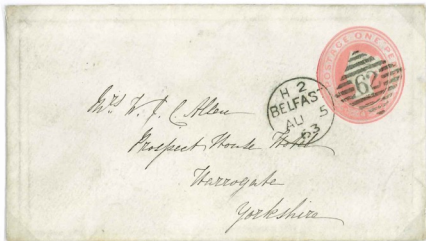 POSTAGE ONE PE
62
H 2
BELFAST
AU 5
63
Mrs W. J. C. Allen
Prospect House Hotel
Harrogate
Yorkshire